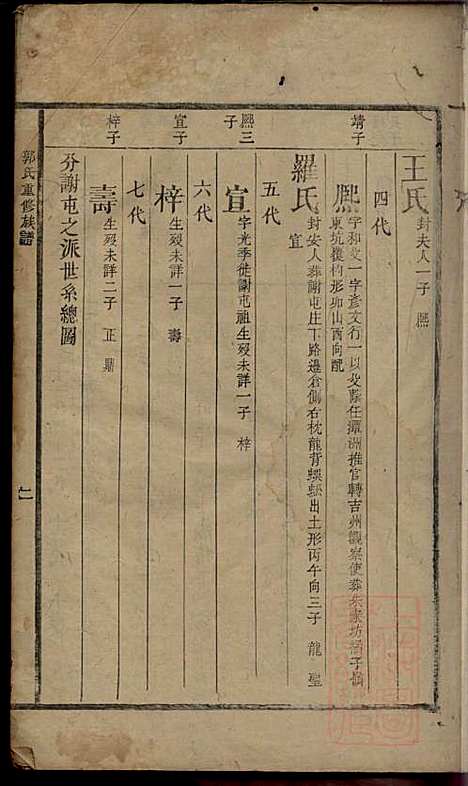 王氏 封夫人一子 熈
四代
靖子
熈 字和文一字彥文行一以父蔭任潭洲推官轉吉州觀察使葬朱家坊獅子嶺
東坑覆杓形卯山酉向配
羅氏 封安人葬謝屯庄下路邊倉側右枕龍背蜈蚣出土形丙午向三子 龍 聖
宜
五代
熈三子
宜 字光季徙謝屯祖生歿未詳一子 梓
六代
宜子
梓 生歿未詳一子 壽
七代
梓子
壽 生歿未詳二子 正 鼎
分謝屯之派世系總圖
郭氏重修族譜